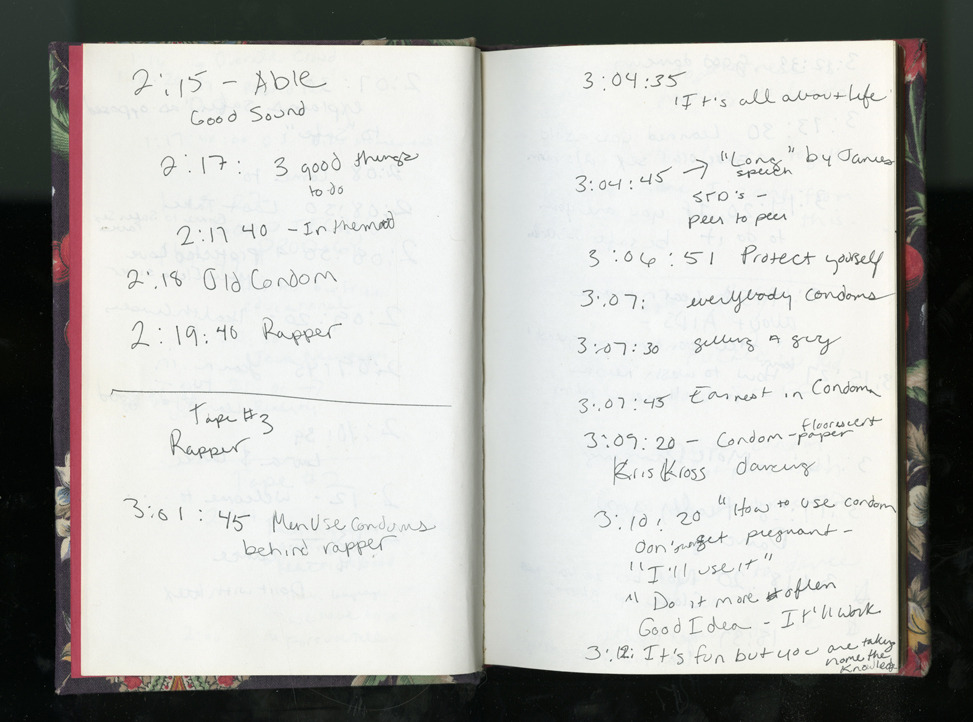 2:15 - Able
Good Sound
2:17: 3 good things
to do
2:17 40 - In the mood
2:18 Old Condom
2:19:40 Rapper
Tape #3
Rapper
3:01:45 Men Use Condoms
behind rapper
3:04:35
"It's all about Life
3:04:45 → "Long" by James
speech
STD's -
peer to peer
3:06:51 Protect yourself
3:07: everybody condoms
3:07:30 getting a guy
3:07:45 Earnest in Condom
3:09:20 - Condom - floorescent
paper
Kris Kross dancing
3:10:20 "How to use condom
Don't get pregnant -
"I'll use it"
"Do it more often
Good Idea - It'll work
3:12: It's fun but you are taking
home the
Knowledge